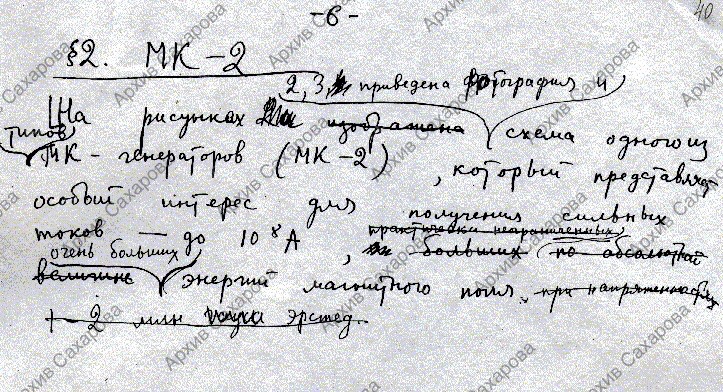 -6-
40
§2. МК-2
2, 3, приведена фотография и
На рисунках изображена схема одного из
типов
МК-генераторов (МК-2), который представляет
особый интерес для получения сильных
токов — до 10⁸ А, практически неограниченных больших по абсолютной
очень больших
величине энергий магнитного поля при напряженностях
1-2 млн эрстед.
Архив Сахарова